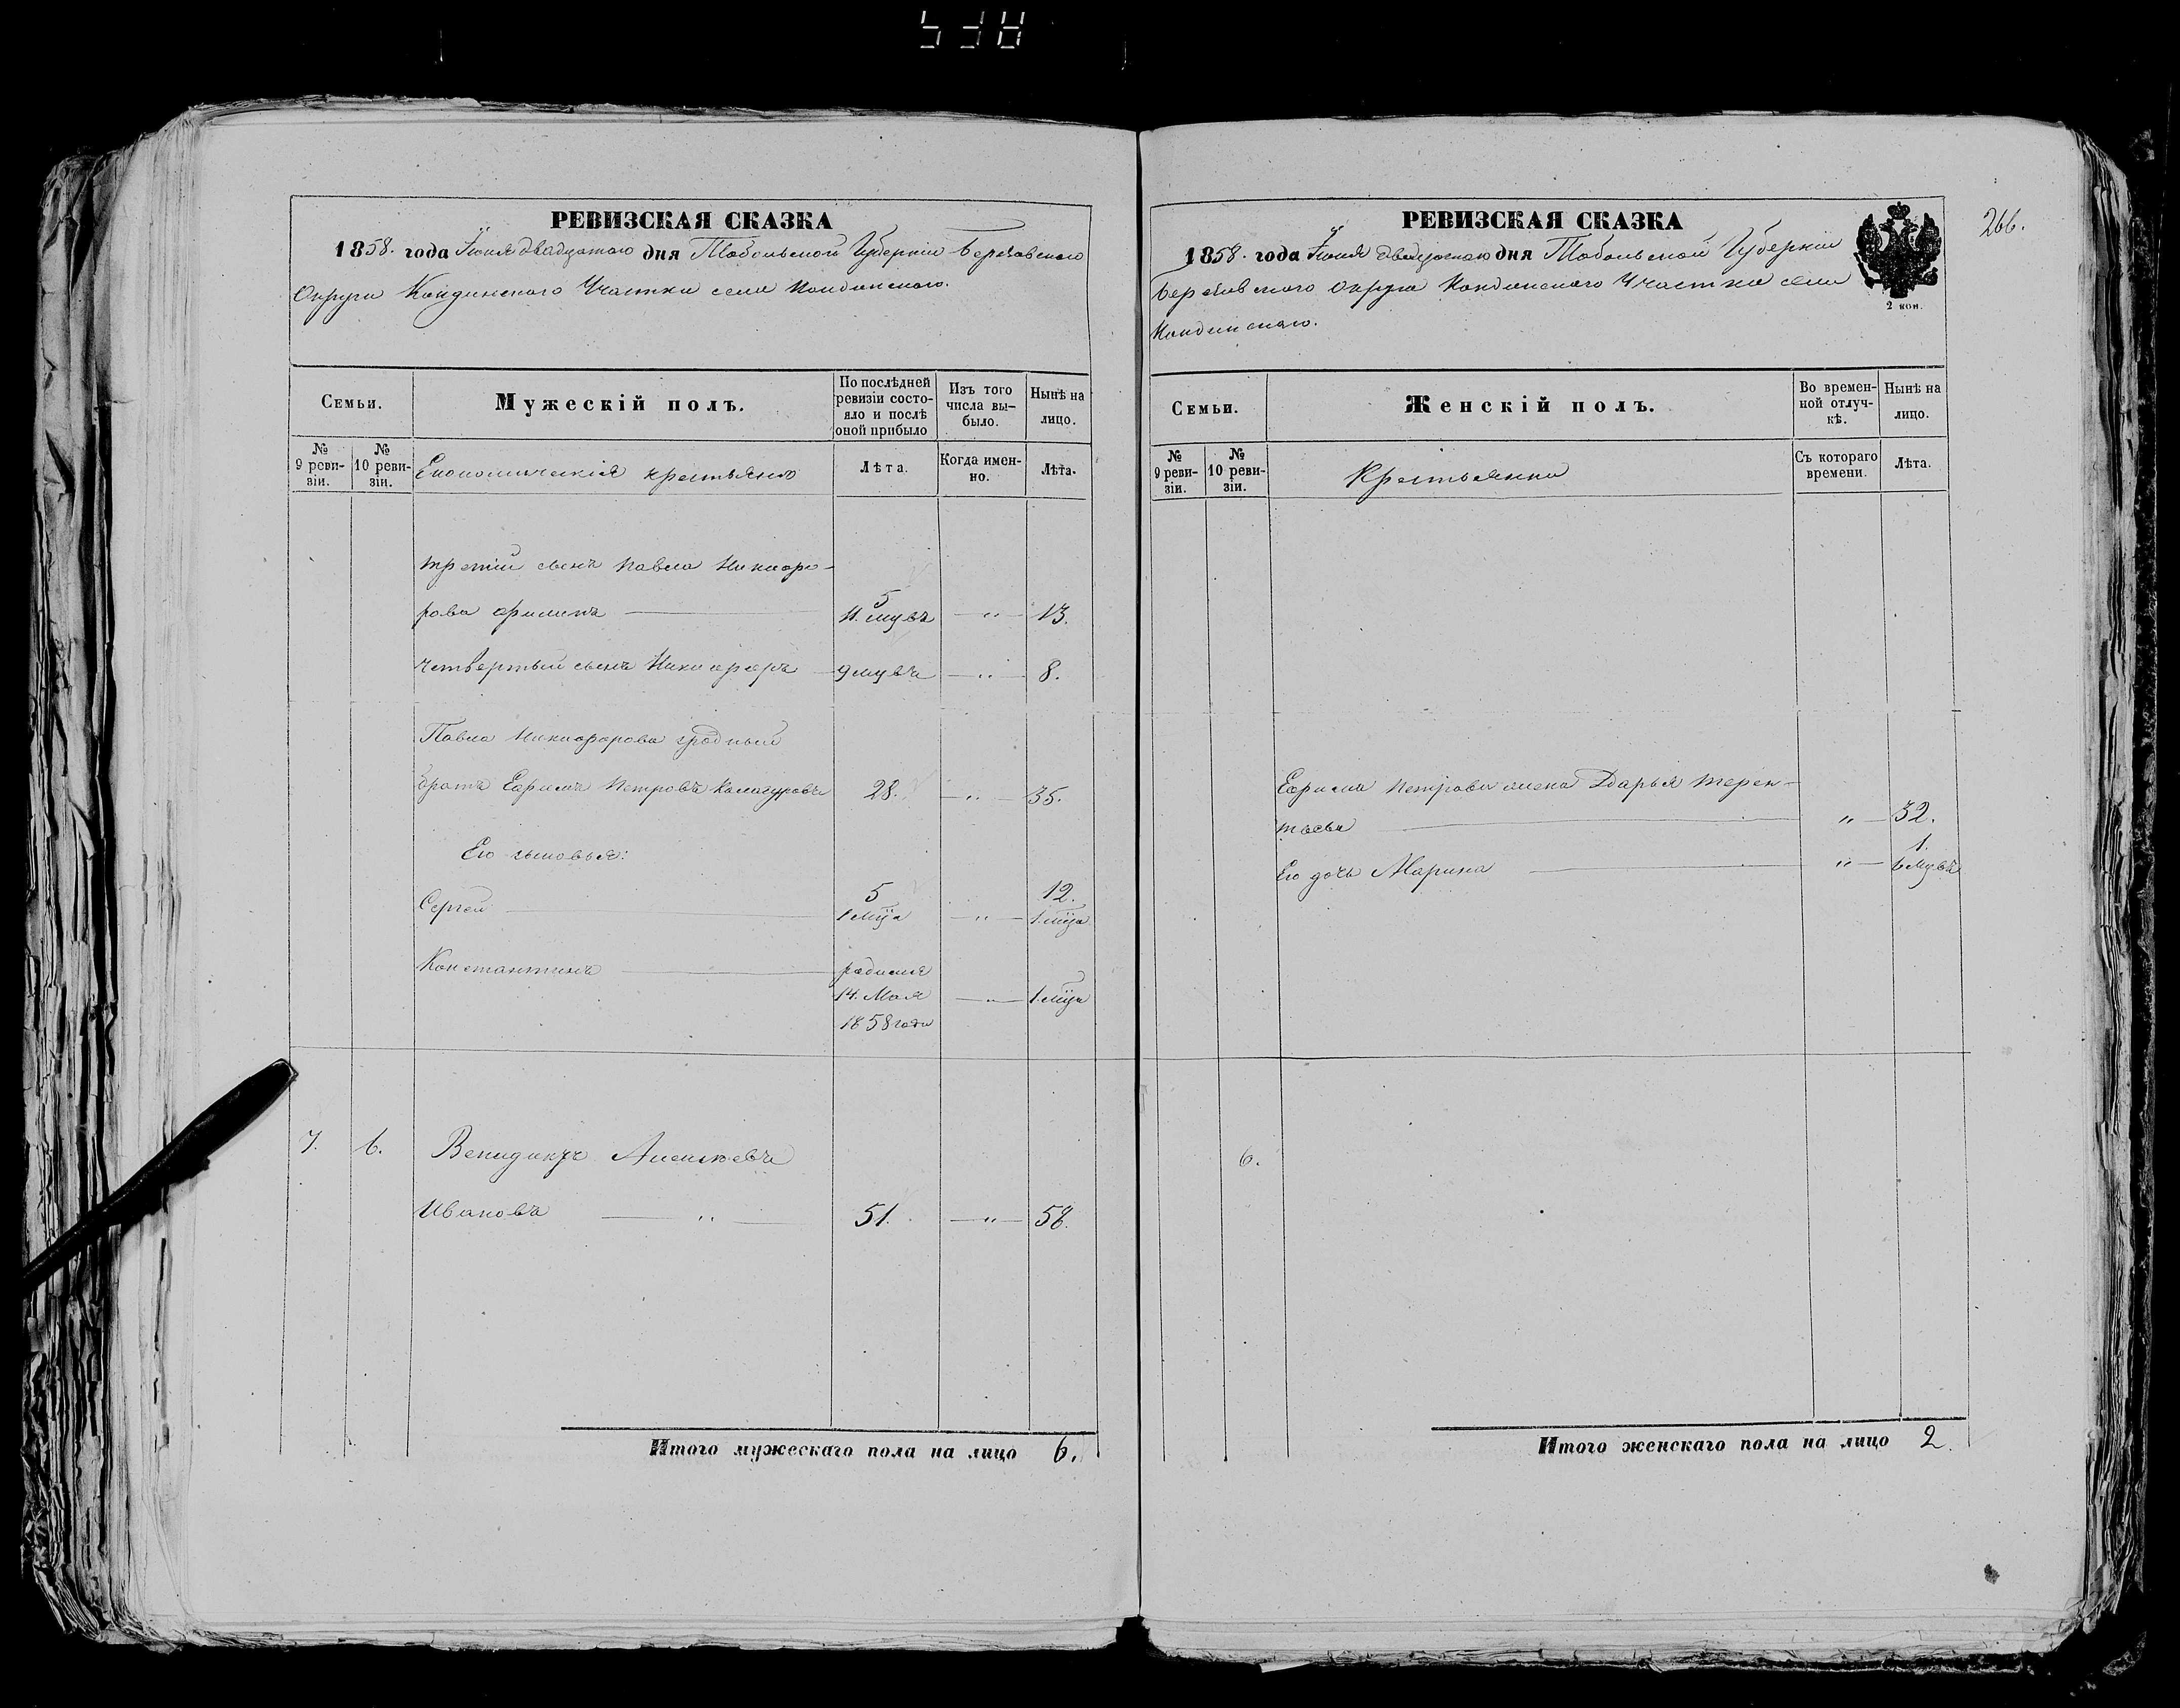 РЕВИЗСКАЯ СКАЗКА
1858. года Іюня двадцатаго дня Тобольской Губерніи Березовскаго
Округа Кондинскаго Участка села Кондинскаго.
Семьи.
Мужескій полъ.
По послѣдней ревизіи состо-
яло и послѣ оной прибыло
Изъ того числа вы-
было.
Нынѣ на лицо.
№ 9 реви-
зіи.
№ 10 реви-
зіи.
Економическія крестьяно
Лѣта.
Когда имен-
но.
Лѣта.
третій сынъ Павла Никифо-
рова Филипъ 5 11. мцвъ — " — 13.
четвертый сынъ Никифоръ 9 мцвъ — " — 8.
Павла Никифорова родный
братъ Ефимъ Петровъ 28. — " — 35.
Его сыновья:
Сергей 5 1 мца — " — 12. 1. мца
Константинъ родился
14. Мая — " — 1. мца
1858 года
7. 6. Венидиктъ Алексѣевъ
Ивановъ — " — 51. — " — 58.
Итого мужескаго пола на лицо 6.
266.
РЕВИЗСКАЯ СКАЗКА
1858. года Іюня двадцатаго дня Тобольской Губерніи
Березовскаго округа Кондинскаго Участка села
Кондинскаго.
2 коп.
Семьи.
Женскій полъ.
Во времен-
ной отлуч-
кѣ.
Нынѣ на лицо.
№ 9 реви-
зіи.
№ 10 реви-
зіи.
Крестьянки
Съ котораго времени.
Лѣта.
Ефима Петрова жена Дарья Терен-
тьева " — 32.
Его дочь Марина " — 1. 6 мцвъ
6.
Итого женскаго пола на лицо 2.